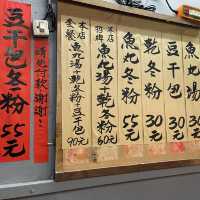 魚丸湯30元
豆干包30元
乾冬粉30元
魚丸冬粉55元
本店招牌
魚丸湯+乾冬粉60元
本店全餐
魚丸湯+豆干包+乾冬粉90元
請先付款謝謝
豆干包冬粉55元